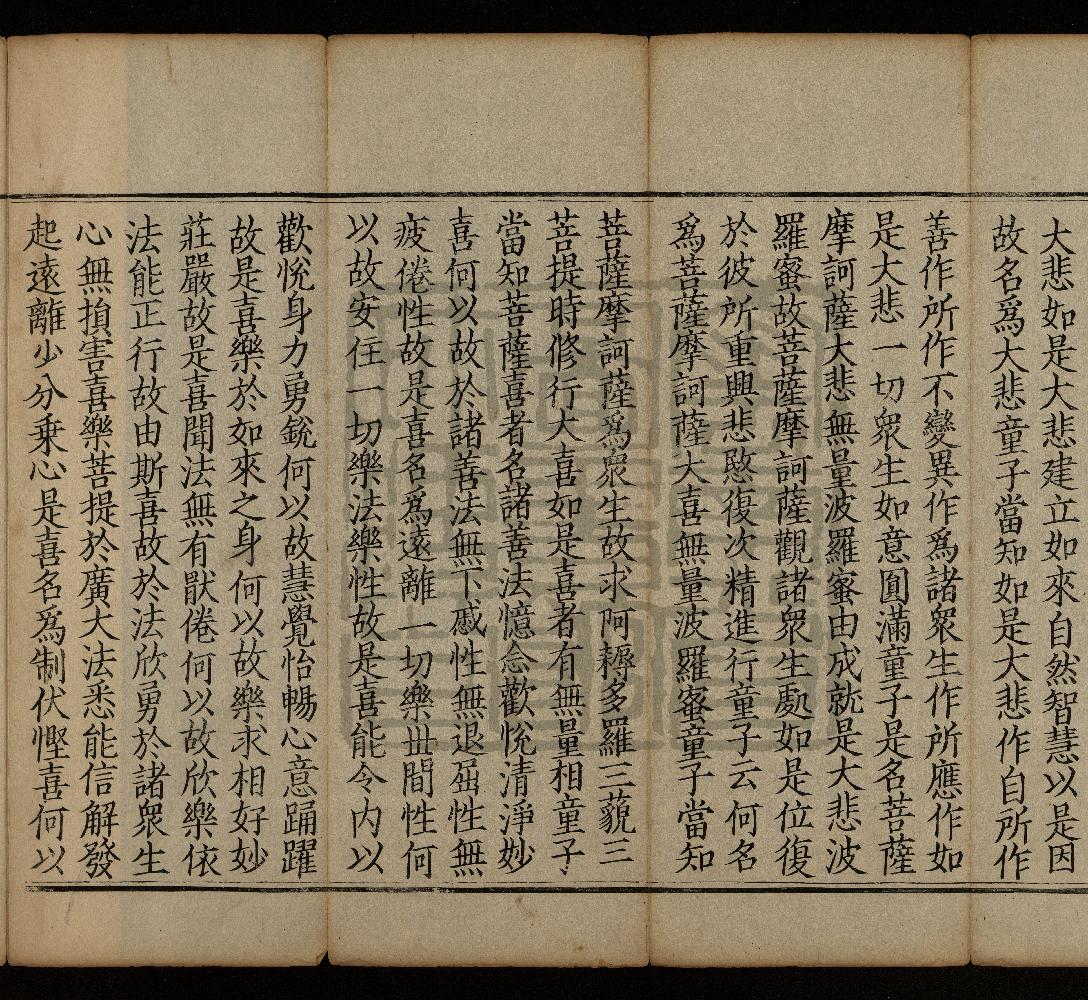 大悲如是大悲建立如來自然智慧以是因
故名爲大悲童子當知如是大悲作自所作
善作所作不變異作爲諸衆生作所應作如
是大悲一切衆生如意圓滿童子是名菩薩
摩訶薩大悲無量波羅蜜由成就是大悲波
羅蜜故菩薩摩訶薩觀諸衆生處如是位復
於彼所重興悲愍復次精進行童子云何名
爲菩薩摩訶薩大喜無量波羅蜜童子當知
菩薩摩訶薩爲衆生故求阿耨多羅三藐三
菩提時修行大喜如是喜者有無量相童子
當知菩薩喜者名諸善法憶念歡悅清淨妙
喜何以故於諸善法無下慼性無退屈性無
疲倦性故是喜名爲遠離一切樂世間性何
以故安住一切樂法樂性故是喜能令內以
歡悅身力勇銳何以故慧覺怡暢心意踊躍
故是喜樂於如來之身何以故樂求相好妙
莊嚴故是喜聞法無有猒倦何以故欣樂依
法能正行故由斯喜故於法欣勇於諸衆生
心無損害喜樂菩提於廣大法悉能信解發
起遠離少分乗心是喜名爲制伏慳喜何以